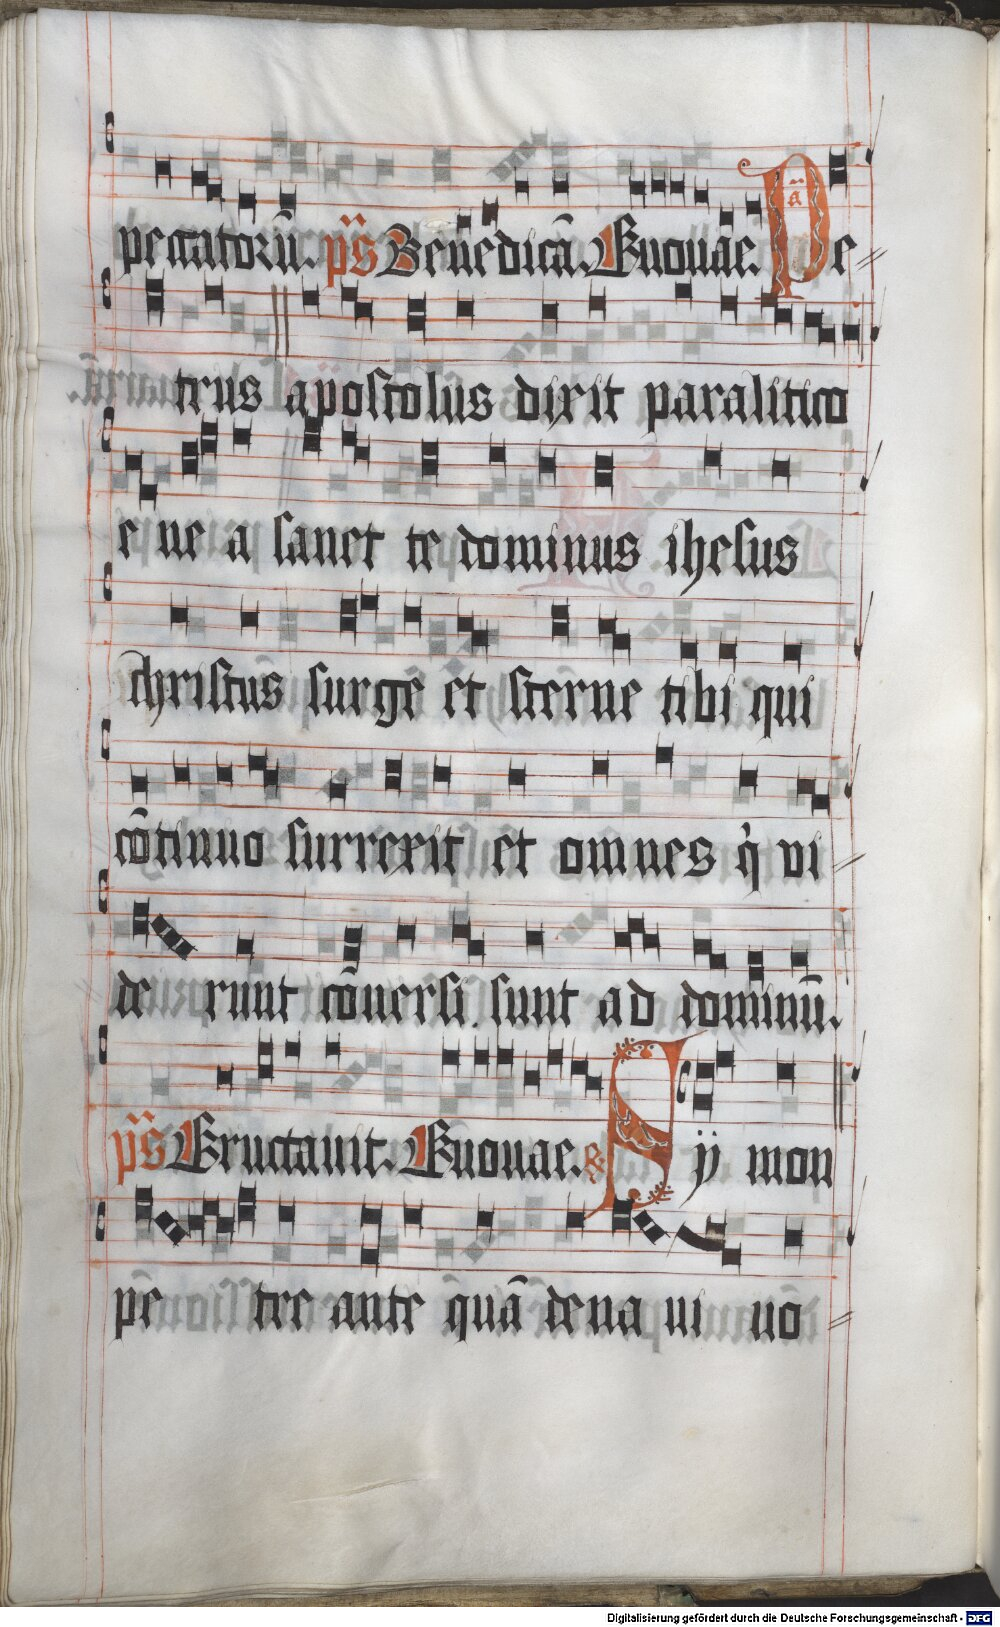 peccatorū. p̄s Benedicā. Euouae. ā Pe⸗
trus apostolus dixit paralitico
e ne a sanet te dominus ihesus
christus surge et sterne tibi qui
cōtinuo surrexit et omnes q̇ vi⸗
de runt cōuersi sunt ad dominū.
p̄s Eructauit. Euouae. R Sÿ mon
pe tre ante quā dena ui uo⸗
Digitalisierung gefördert durch die Deutsche Forschungsgemeinschaft - DFG